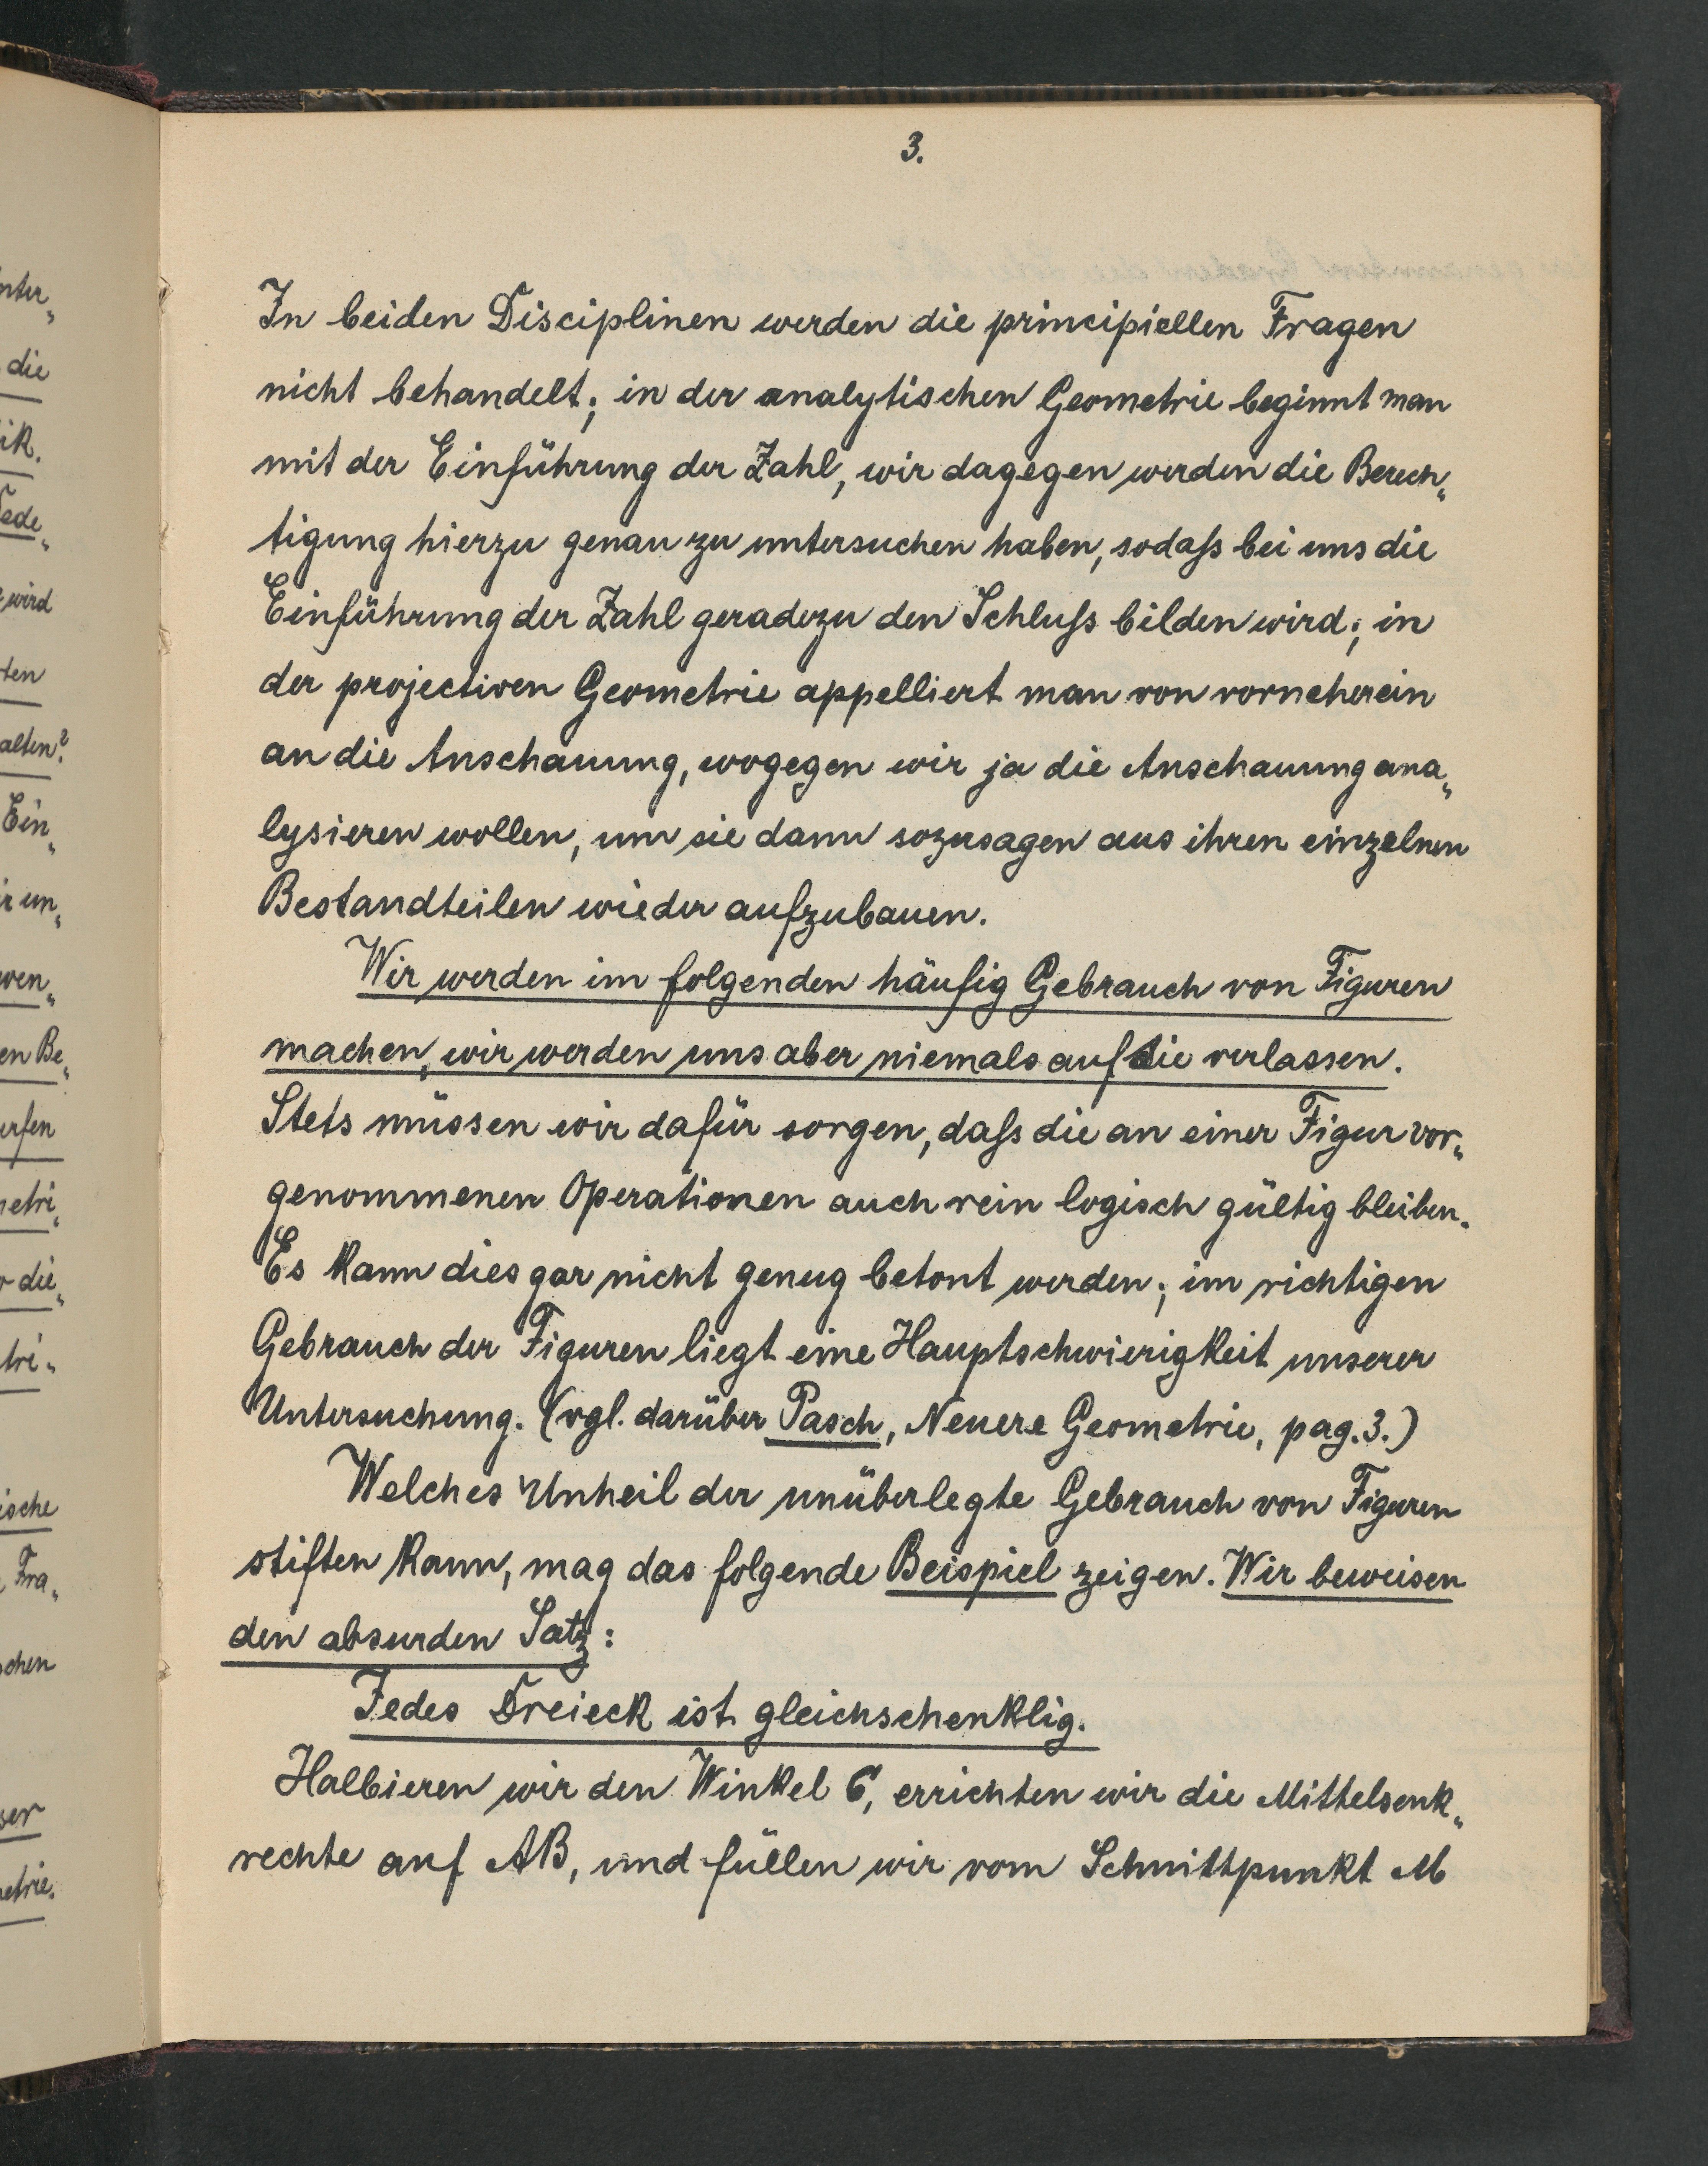 3.
In beiden Disciplinen werden die principiellen Fragen
nicht behandelt; in der analytischen Geometrie beginnt man
mit der Einführung der Zahl, wir dagegen werden die Berech„
tigung hierzu genau zu untersuchen haben, sodaſs bei uns die
Einführung der Zahl geradezu den Schluſs bilden wird; in
der projectiven Geometrie appelliert man von vorneherein
an die Anschauung, wogegen wir ja die Anschauung ana„
lysieren wollen, um sie dann sozusagen aus ihren einzelnen
Bestandteilen wieder aufzubauen.
Wir werden im folgenden häufig Gebrauch von Figuren
machen, wir werden uns aber niemals auf sie verlassen.
Stets müssen wir dafür sorgen, daſs die an einer Figur vor„
genommenen Operationen auch rein logisch gültig bleiben.
Es kann dies gar nicht genug betont werden; im richtigen
Gebrauch der Figuren liegt eine Hauptschwierigkeit unserer
Untersuchung. (vgl. darüber Pasch, Neuere Geometrie, pag. 3.)
Welches Unheil der unüberlegte Gebrauch von Figuren
stiften kann, mag das folgende Beispiel zeigen. Wir beweisen
den absurden Satz:
Jedes Dreieck ist gleichschenklig.
Halbieren wir den Winkel C, errichten wir die Mittelsenk„
rechte auf AB, und füllen wir vom Schnittpunkt M